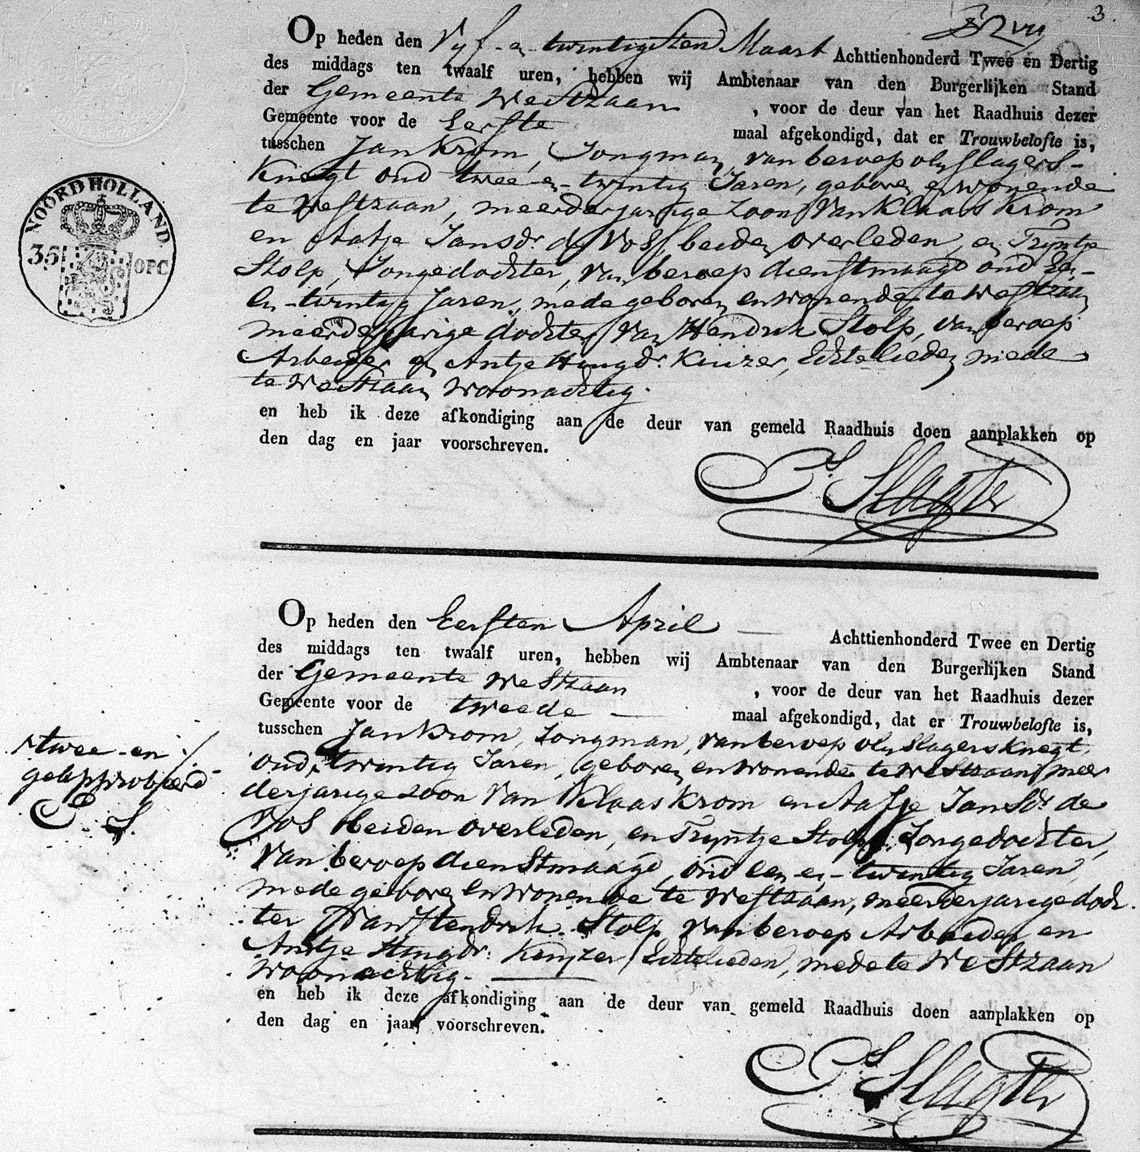 3.
Op heden den Vyf-en-twintigsten Maart Achttienhonderd Twee en Dertig
des middags ten twaalf uren, hebben wij Ambtenaar van den Burgerlijken Stand
der Gemeente Westzaan , voor de deur van het Raadhuis dezer
Gemeente voor de Eerste maal afgekondigd, dat er Trouwbelofte is,
tusschen Jan Krom, Jongman, van beroep olyslagers-
knegt oud twee-en-twintig Jaren, geboren en wonende
te Westzaan, meerderjarige Zoon van Klaas Krom
en Aafje Jansdr. de Vos beiden overleden, en Tryntje
Stolp, Jongedochter, van beroep dienstmaagd oud Een-
en-twintig Jaren, mede geboren en wonende te Westzaan
meerderjarige dochter van Hendrik Stolp, van beroep
Arbeider en Antje Huygdr. Keuzer, Echtelieden mede
te Westzaan woonachtig.
en heb ik deze afkondiging aan de deur van gemeld Raadhuis doen aanplakken op
den dag en jaar voorschreven.
Ps. Slagter
VOORD HOLLAND
35 OPC
Op heden den Eersten April Achttienhonderd Twee en Dertig
des middags ten twaalf uren, hebben wij Ambtenaar van den Burgerlijken Stand
der Gemeente Westzaan , voor de deur van het Raadhuis dezer
Gemeente voor de tweede maal afgekondigd, dat er Trouwbelofte is,
tusschen Jan Krom, Jongman, van beroep olyslagersknegt,
oud, twintig Jaren, geboren en wonende te Westzaan, meer
derjarige zoon van Klaas Krom en Aafje Jansdr. de
Vos beiden overleden, en Tryntje Stolp, Jongedochter,
van beroep dienstmaagd, oud een-en-twintig Jaren,
mede geboren en wonende te Westzaan, meerderjarige doch-
ter van Hendrik Stolp van beroep Arbeider en
Antje Huygdr. Keuzer, Echtelieden, mede te Westzaan
woonachtig.
en heb ik deze afkondiging aan de deur van gemeld Raadhuis doen aanplakken op
den dag en jaar voorschreven.
Ps. Slagter
twee-en-
geapprobeerd
P. S.